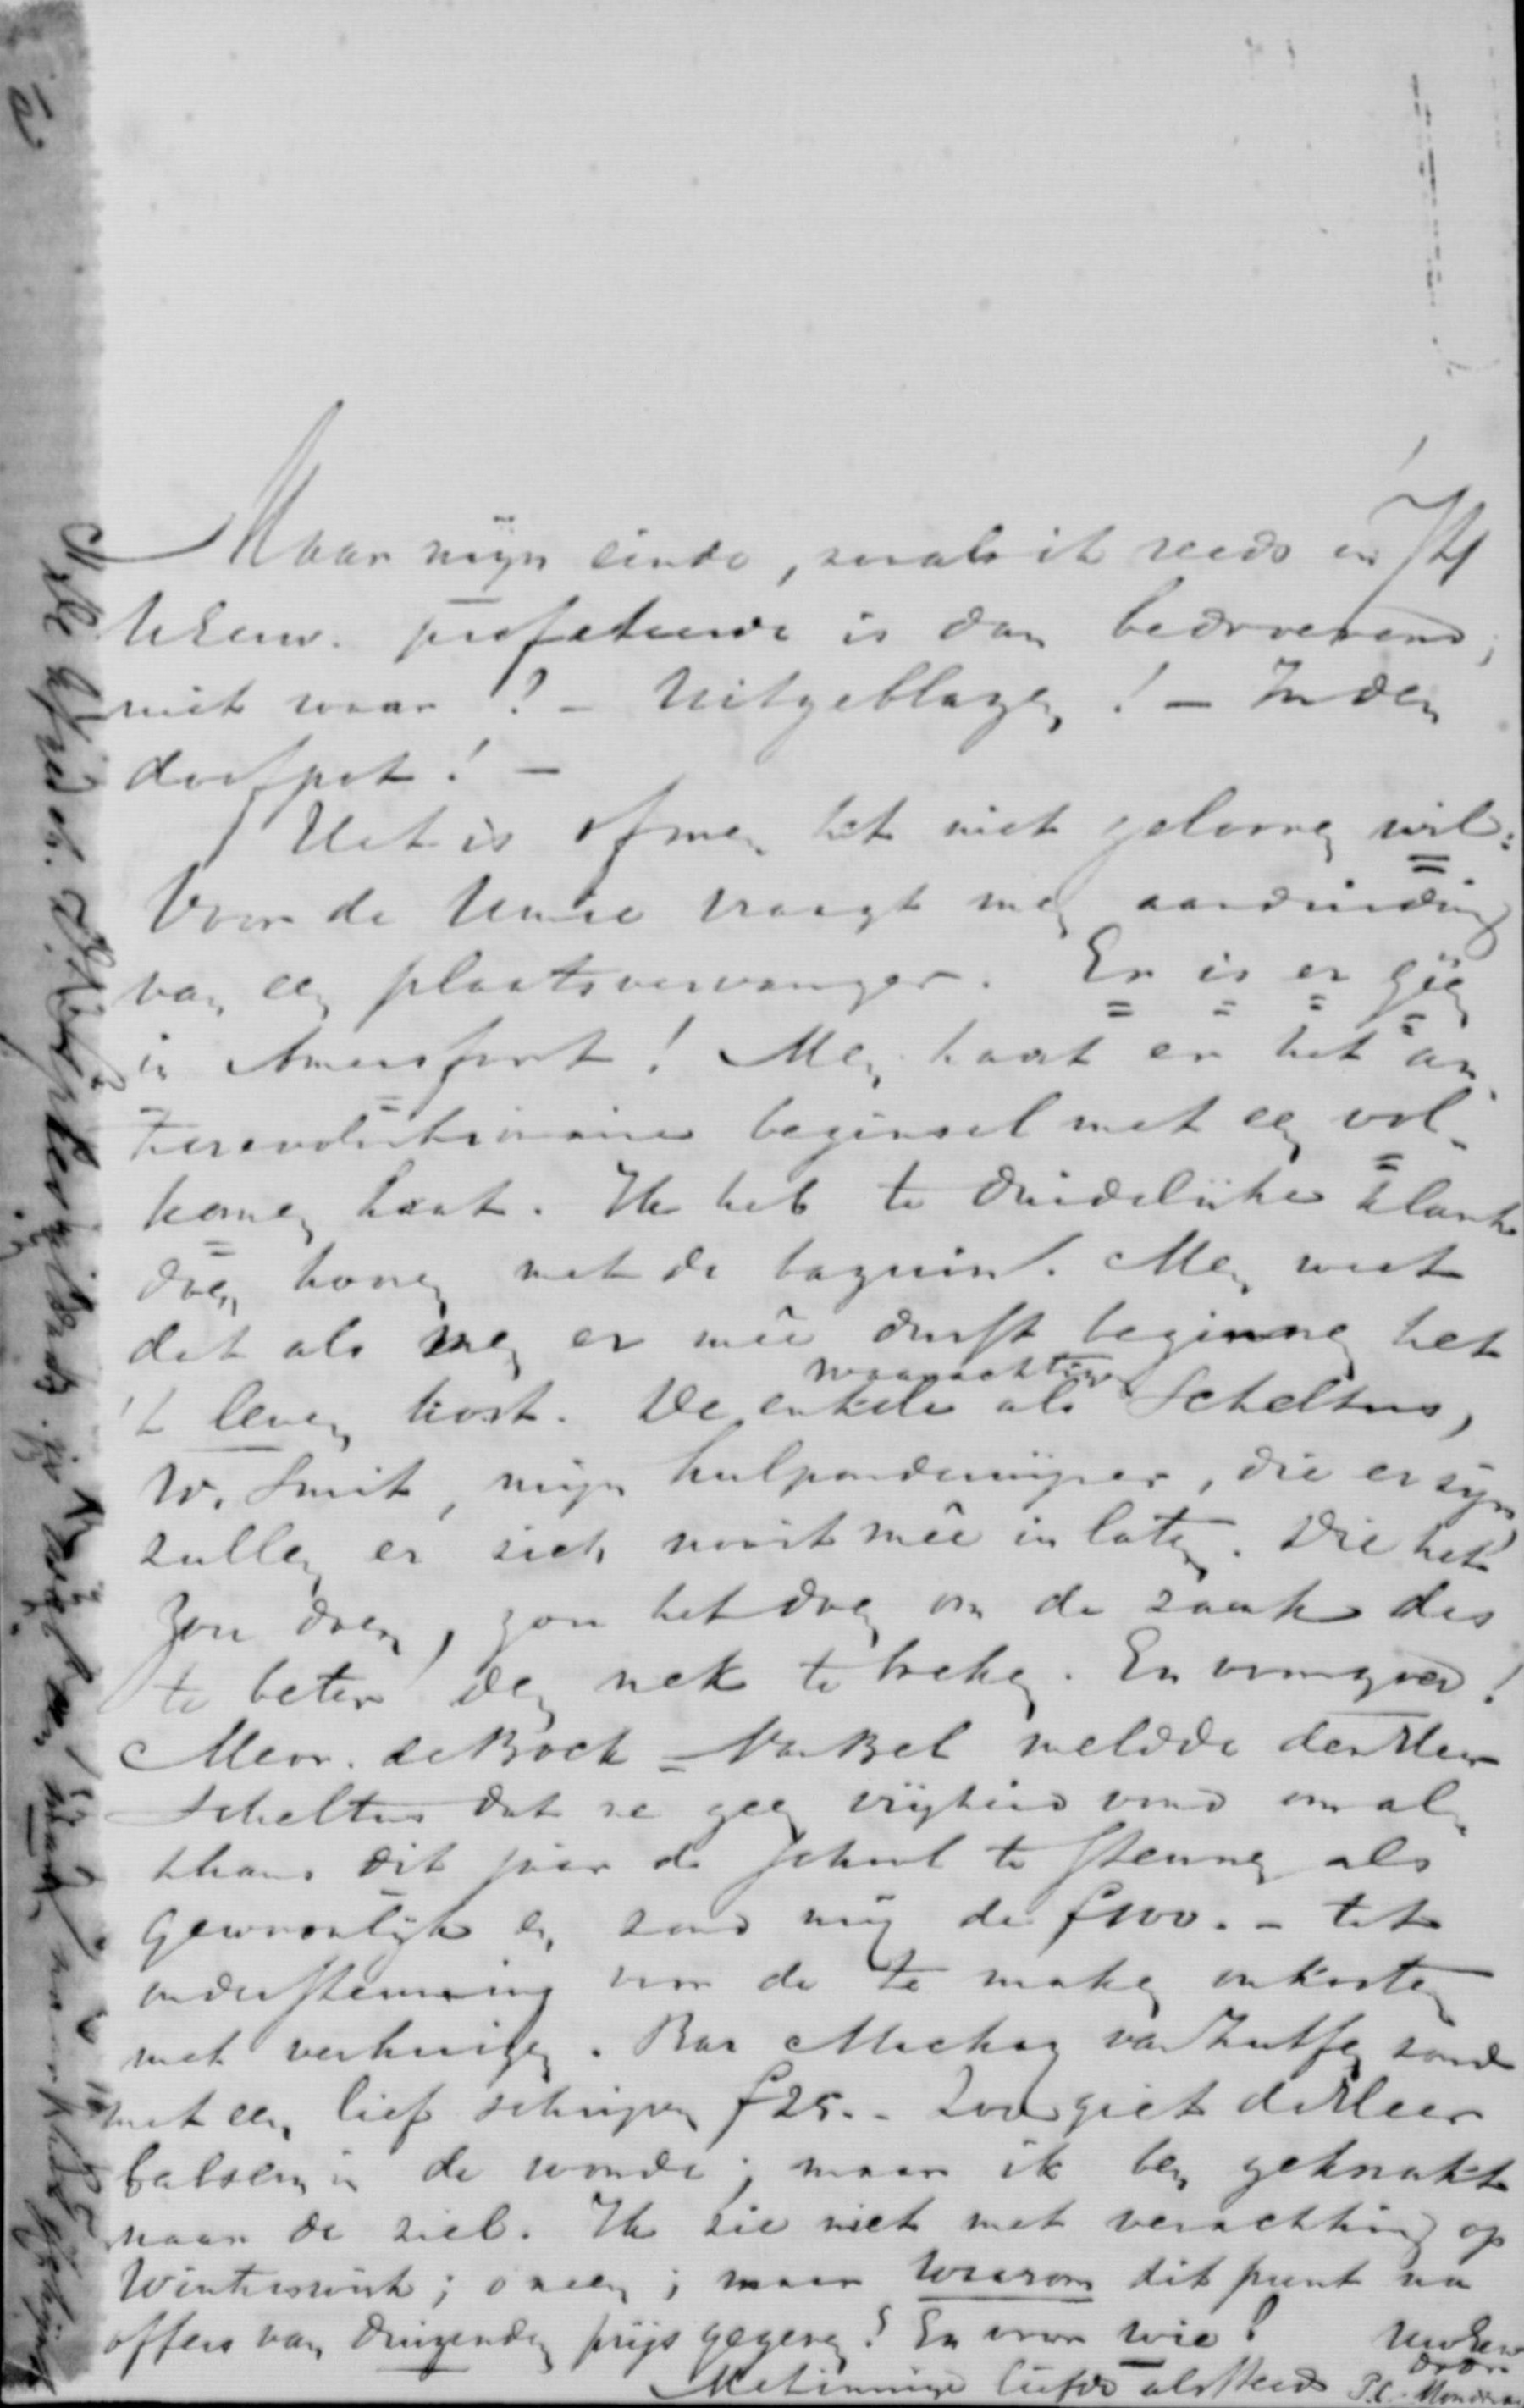 Maar mijn einde, zooals ik reeds in 74
UEerw. profeteerde is dan bedroevend,
niet waar!? – Uitgeblazen! – In den
doofpot! –
Het is of men het niet gelooven wil:
Voor de Unie vraagt men aanduiding
van een plaatsvervanger. Er is er geen
in Amersfoort! Men haat er het an
tirevolutionaire beginsel met een vol-
komen haat. Ik heb te duidelijke klank
doen hooren met de bazuin. Men weet
dat als men er meê durft beginnen het
't leven kost. De enkele als Scheltus,
waarachtige
W. Smit, mijn hulponderwijzer, die er zijn
zullen er zich nooit meê inlaten. Die het
zou doen, zou het doen om de zaak des
te beter den nek te breken. En voorgoed!
Mevr. de Bock – Van Bel meldde den Heer
Scheltus dat ze geen vrijheid vond om al-
thans dit jaar de school te steunen als
gewoonlijk en zond mij de f100.- tot
ondersteuning voor de te maken onkosten
met verhuizen. Bar Mackay van Zutfen zond
met een lief schrijven f25.- Zoo giet de Heer
balsem in de wonde; maar ik ben geknakt
naar de ziel. Ik zie niet met verachting op
Winterswijk; o neen; maar waarom dit punt na
offers van duizenden prijs gegeven? En voor wie?
Met innige liefde als steeds
UwEerw
door
P.C. Mondriaan